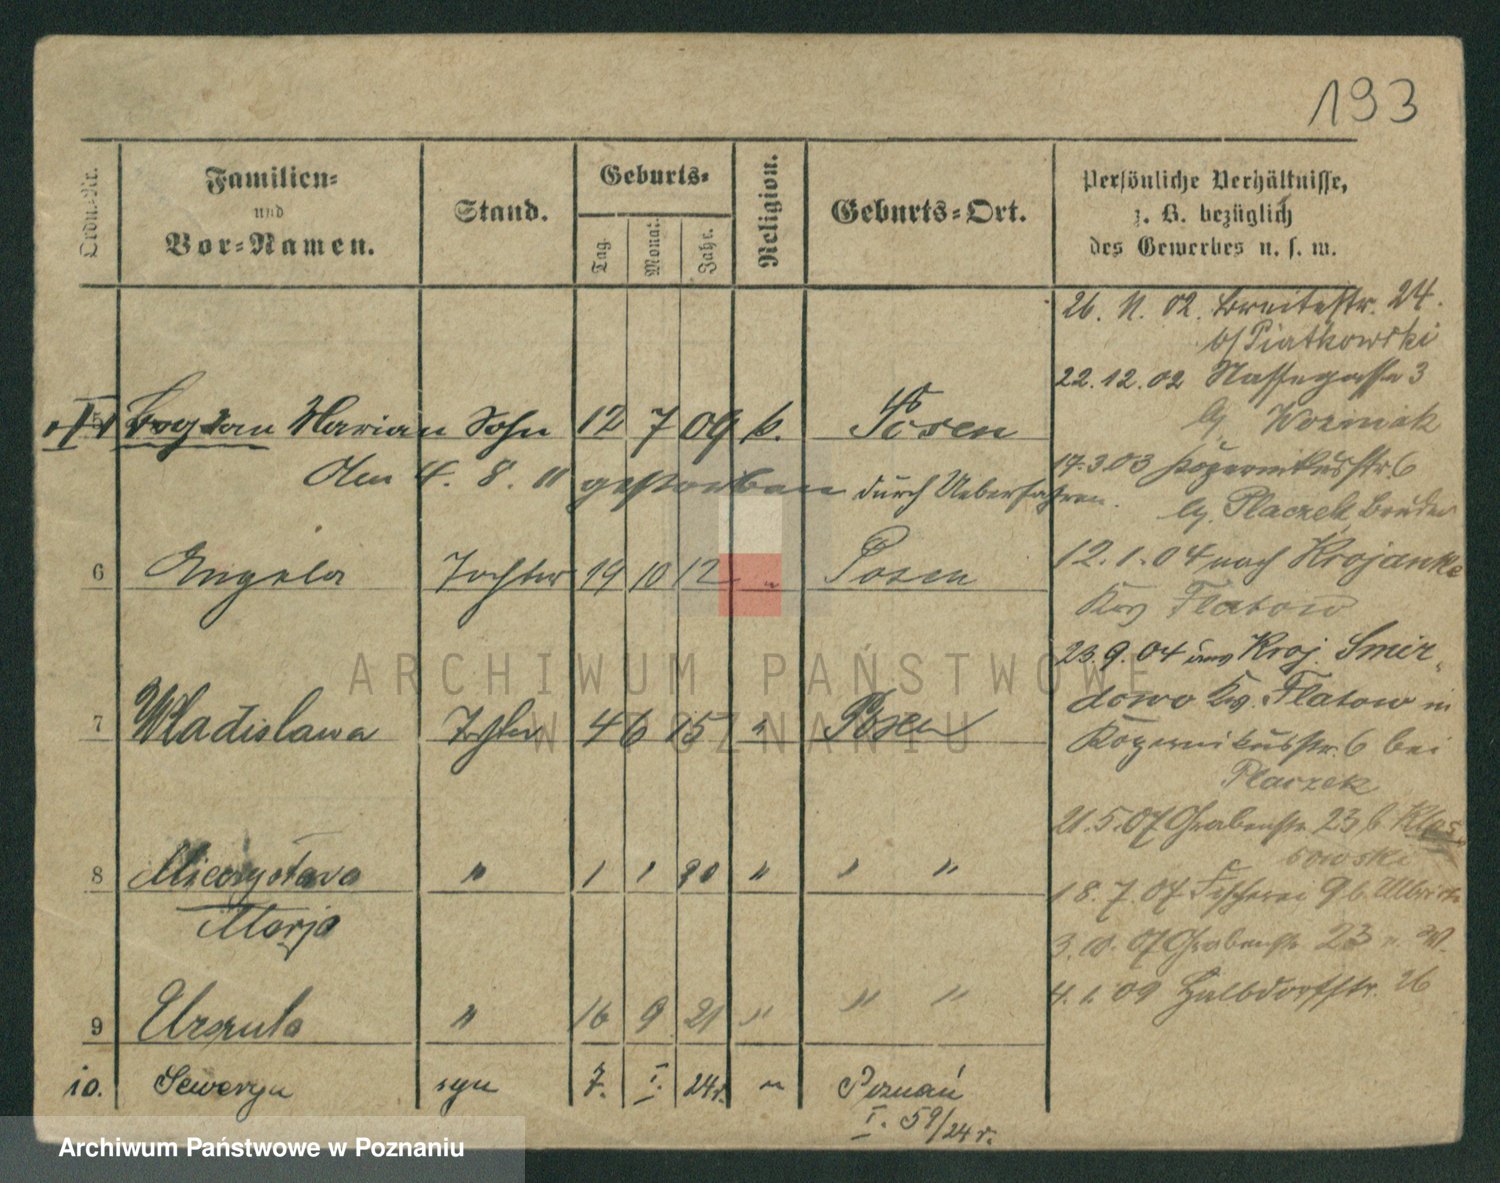 193
Ordn.-Nr.
Familien-
und
Vor-Namen.
Stand.
Geburts-
Tag.
Monat.
Jahr.
Religion.
Geburts-Ort.
Persönliche Verhältnisse,
z. B. bezüglich
des Gewerbes u. s. w.
26. 11. 02. Breitestr. 24.
b/ Piatkowski
22. 12. 02 Nassegasse 3
bj. Wozniak
17.3.03 Kopernikusstr. 6
bj. Placzek, Bruder
12. 1. 04 nach Krojanke
Krs Flatow
23. 9. 04 aus Kroj. Smir-
dowo Kr. Flatow in
Kopernikusstr. 6 bei
Placzek
21. 5. 07 Grabenstr. 23 b.
18. 7. 07 Fischerei 9 b.
3. 10. 07 Grabenstr. 23
4. 1. 09 Halbdorfstr. 26
Bogdan Marian Sohn 12 7 09 k. Posen
den 4. 8. 11 gestorben durch Ueberfahren.
6 Angela Tochter 19 10 12 " Posen
7 Władislawa Tochter 4 6 15 " Posen
8 Mieczysława " 1 1 20 " " "
Marja
9 Urszula " 16 9 21 " " "
10. Seweryn syn 7. I. 24 r. " Poznań
I. 59/24 r.
ARCHIWUM PAŃSTWOWE
W POZNANIU
Archiwum Państwowe w Poznaniu